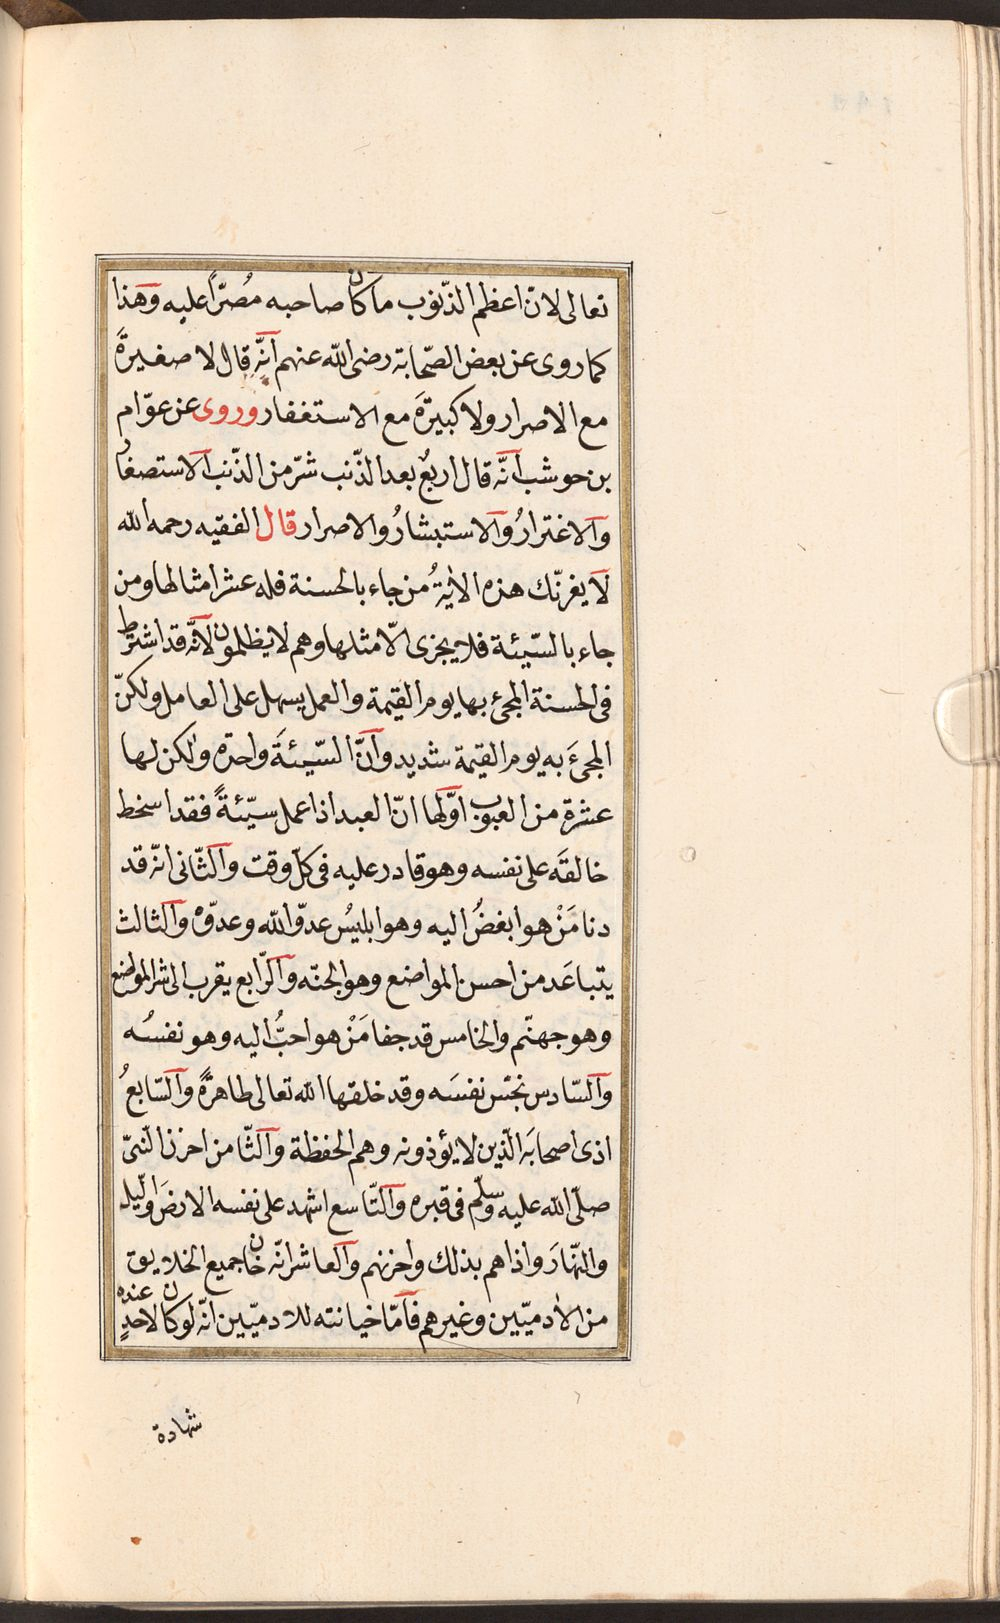 تعالى لانّ اعظم الذّنوب ما كان صاحبه مُصرّاً عليه وهذا
كما روى عن بعض الصّحابة رضى الله عنهم انّه قال لا صغيرةً
مع الاصرار ولا كبيرةَ مع الاستغفار وروى عن عوّام
بن حوشب انّه قال اربعٌ بعد الذّنب شرّ من الذّنب الاستصغارُ
والاغترارُ والاستبشارُ والاصرار قال الفقيه رحمه الله
لا يغرنّك هذه الاٰيةُ من جاء بالحسنة فله عشر امثالها ومن
جاء بالسّيئة فلا يجزى الّا مثلها وهم لا يظلمون لانّه قد اشترط
فى الحسنة المجئ بها يوم القيمة والعمل يسهل على العامل ولكنّ
المجئَ به يوم القيمة شديد وانّ السّيئةَ واحدة ولكن لها
عشرة من العيوب اوّلها انّ العبد اذا عمل سيّئةً فقد اسخط
خالقَه على نفسه وهو قادر عليه فى كلّ وقت والثّانى انّه قد
دنا مَنْ هو ابغضُ اليه وهو ابليسُ عدوّ الله وعدوّه والثالث
يتباعَد من احسن المواضع وهو الجنّه والرّابع يقرب الى شر المواضع
وهو جهنّم والخامس قد جفا مَنْ هو احبُّ اليه وهو نفسُه
والسّادس نجّس نفسَه وقد خلقها الله تعالى طاهرةً والسّابعُ
اذى اصحابَه الّذين لا يؤذونه وهم الحفظة والثّامن احزن النّبىّ
صلّى الله عليه وسلّم فى قبره والتّاسع اشهد على نفسه الارضَ والّيلَ
والنّهارَ واذاهم بذلك واحزنهم والعاشر انّه خان جميع الخلايق
من الاٰدميّين وغيرهم فامّا خيانته للادميّين انّه لو كان لاحدٍ عنده
شهادة